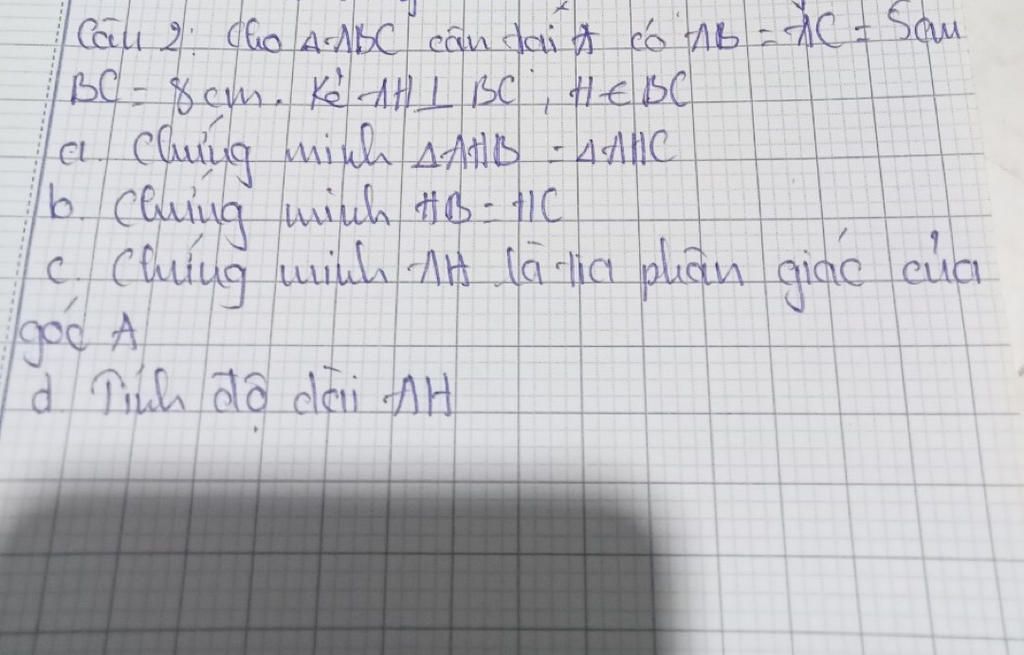 Câu 2: Cho ΔABC cân tại A có AB = AC = 5cm
BC = 8cm. Kẻ AH ⊥ BC; H ∈ BC
a. Chứng minh ΔAHB = ΔAHC
b. Chứng minh HB = HC
c. Chứng minh AH là tia phân giác của
góc A
d Tính độ dài AH